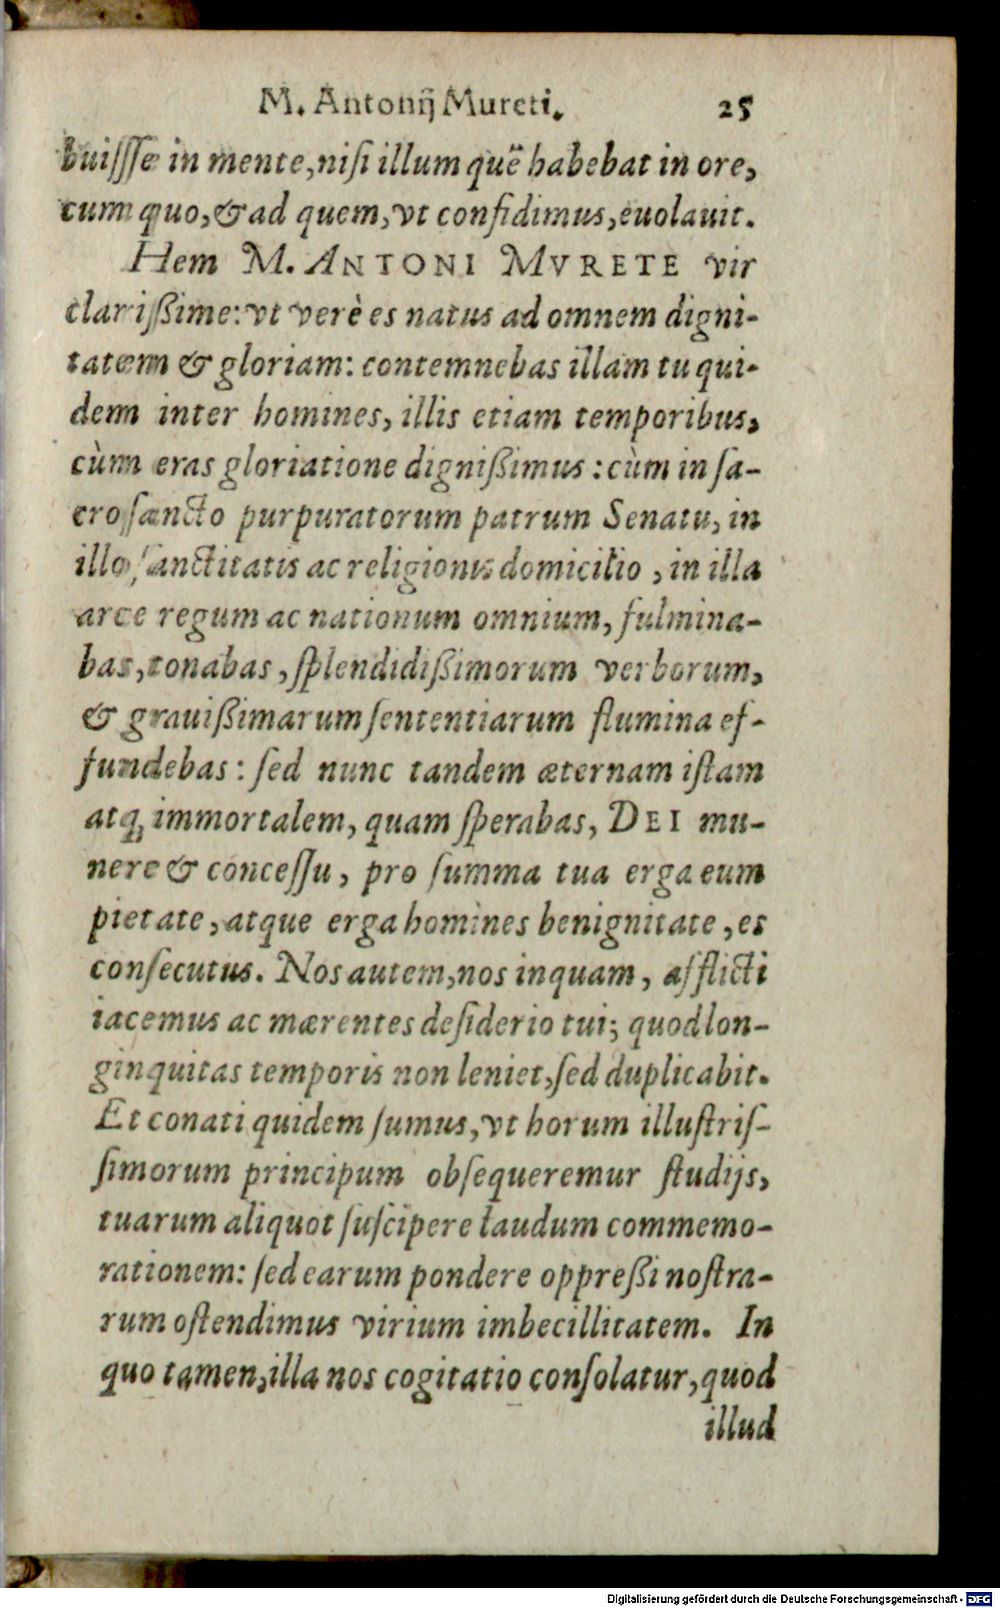 M. Antonij Mureti. 25
buiſſſe in mente, niſi illum quē habebat in ore,
cum quo, & ad quem, vt confidimus, euolauit.
Hem M. ANTONI MVRETE vir
clariſſime: vt verè es natus ad omnem digni-
tatem & gloriam: contemnebas illam tu qui-
dem inter homines, illis etiam temporibus,
cùm eras gloriatione digniſſimus: cùm in ſa-
croſſancto purpuratorum patrum Senatu, in
illo ſanctitatis ac religionis domicilio, in illa
arce regum ac nationum omnium, fulmina-
bas, tonabas, ſplendidiſſimorum verborum,
& grauiſſimarum ſententiarum flumina ef-
fundebas: ſed nunc tandem æternam iſtam
atq; immortalem, quam ſperabas, DEI mu-
nere & conceſſu, pro ſumma tua erga eum
pietate, atque erga homines benignitate, es
conſecutus. Nos autem, nos inquam, afflicti
iacemus ac mærentes deſiderio tui; quod lon-
ginquitas temporis non leniet, ſed duplicabit.
Et conati quidem ſumus, vt horum illuſtriſ-
ſimorum principum obſequeremur ſtudijs,
tuarum aliquot ſuſcipere laudum commemo-
rationem: ſed earum pondere oppreſſi noſtra-
rum oſtendimus virium imbecillitatem. In
quo tamen, illa nos cogitatio conſolatur, quod
illud
Digitalisierung gefördert durch die Deutsche Forschungsgemeinschaft - DFG